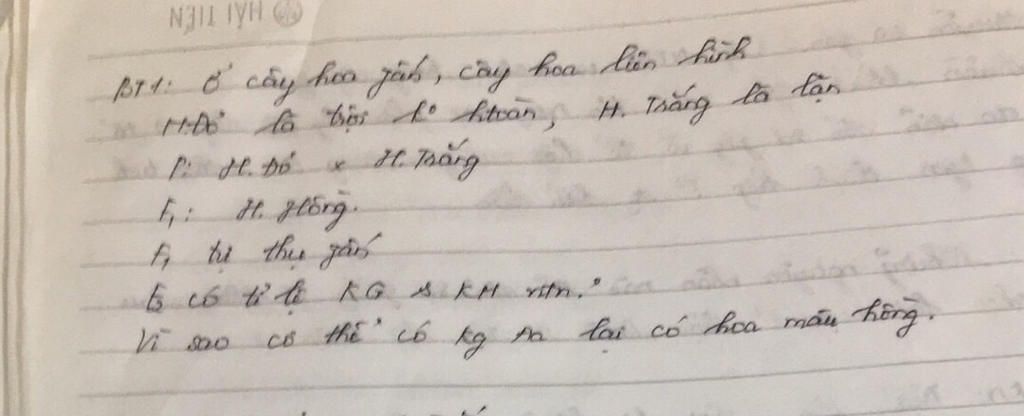 HẢI TIẾN
BT1: Ở cây hoa phấn, cây hoa liên hình
H.Đỏ là trội ko htoàn, H. Trắng là lặn
P: H. Đỏ x H. Trắng
F1: H. Hồng.
F1 tự thụ phấn
F2 có tỉ lệ KG & KH ntn?
Vì sao cơ thể có kg Aa lại có hoa màu hồng.